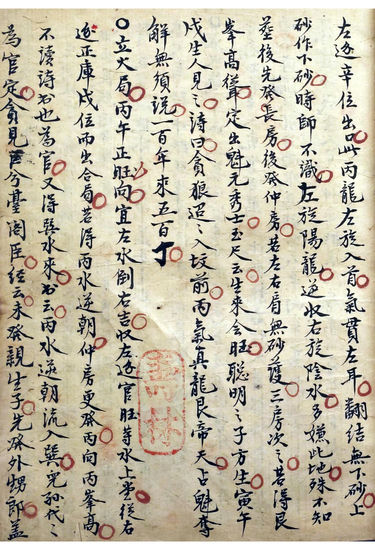 左逐辛位出此丙龍左旋入首氣貫左耳翻結無下砂上
砂作下砂時師不識左旋陽龍逆收右旋陰水多嫌此地殊不知
塟後先發長房後發仲房若左右肩無砂護三房次之若得艮
峯高聳定出魁元秀士玉尺云生來會旺聰明之子方生寅午
戌生人見之詩曰貪狼迢之入坟前丙氣真龍艮帝天占魁奪
解無須說一百年來五百丁
○立火局丙午正旺向宜左水倒右吉收左逐官旺等水上堂從右
逐正庫戌位而出合局若得丙水逆朝仲房更發丙向丙峯高
不讀詩書也為官又得巽水來書云丙水逆朝流入巽兒孫代々
為官定貪見 兮臺閣臣經云未發親生子先發外甥郎蓋